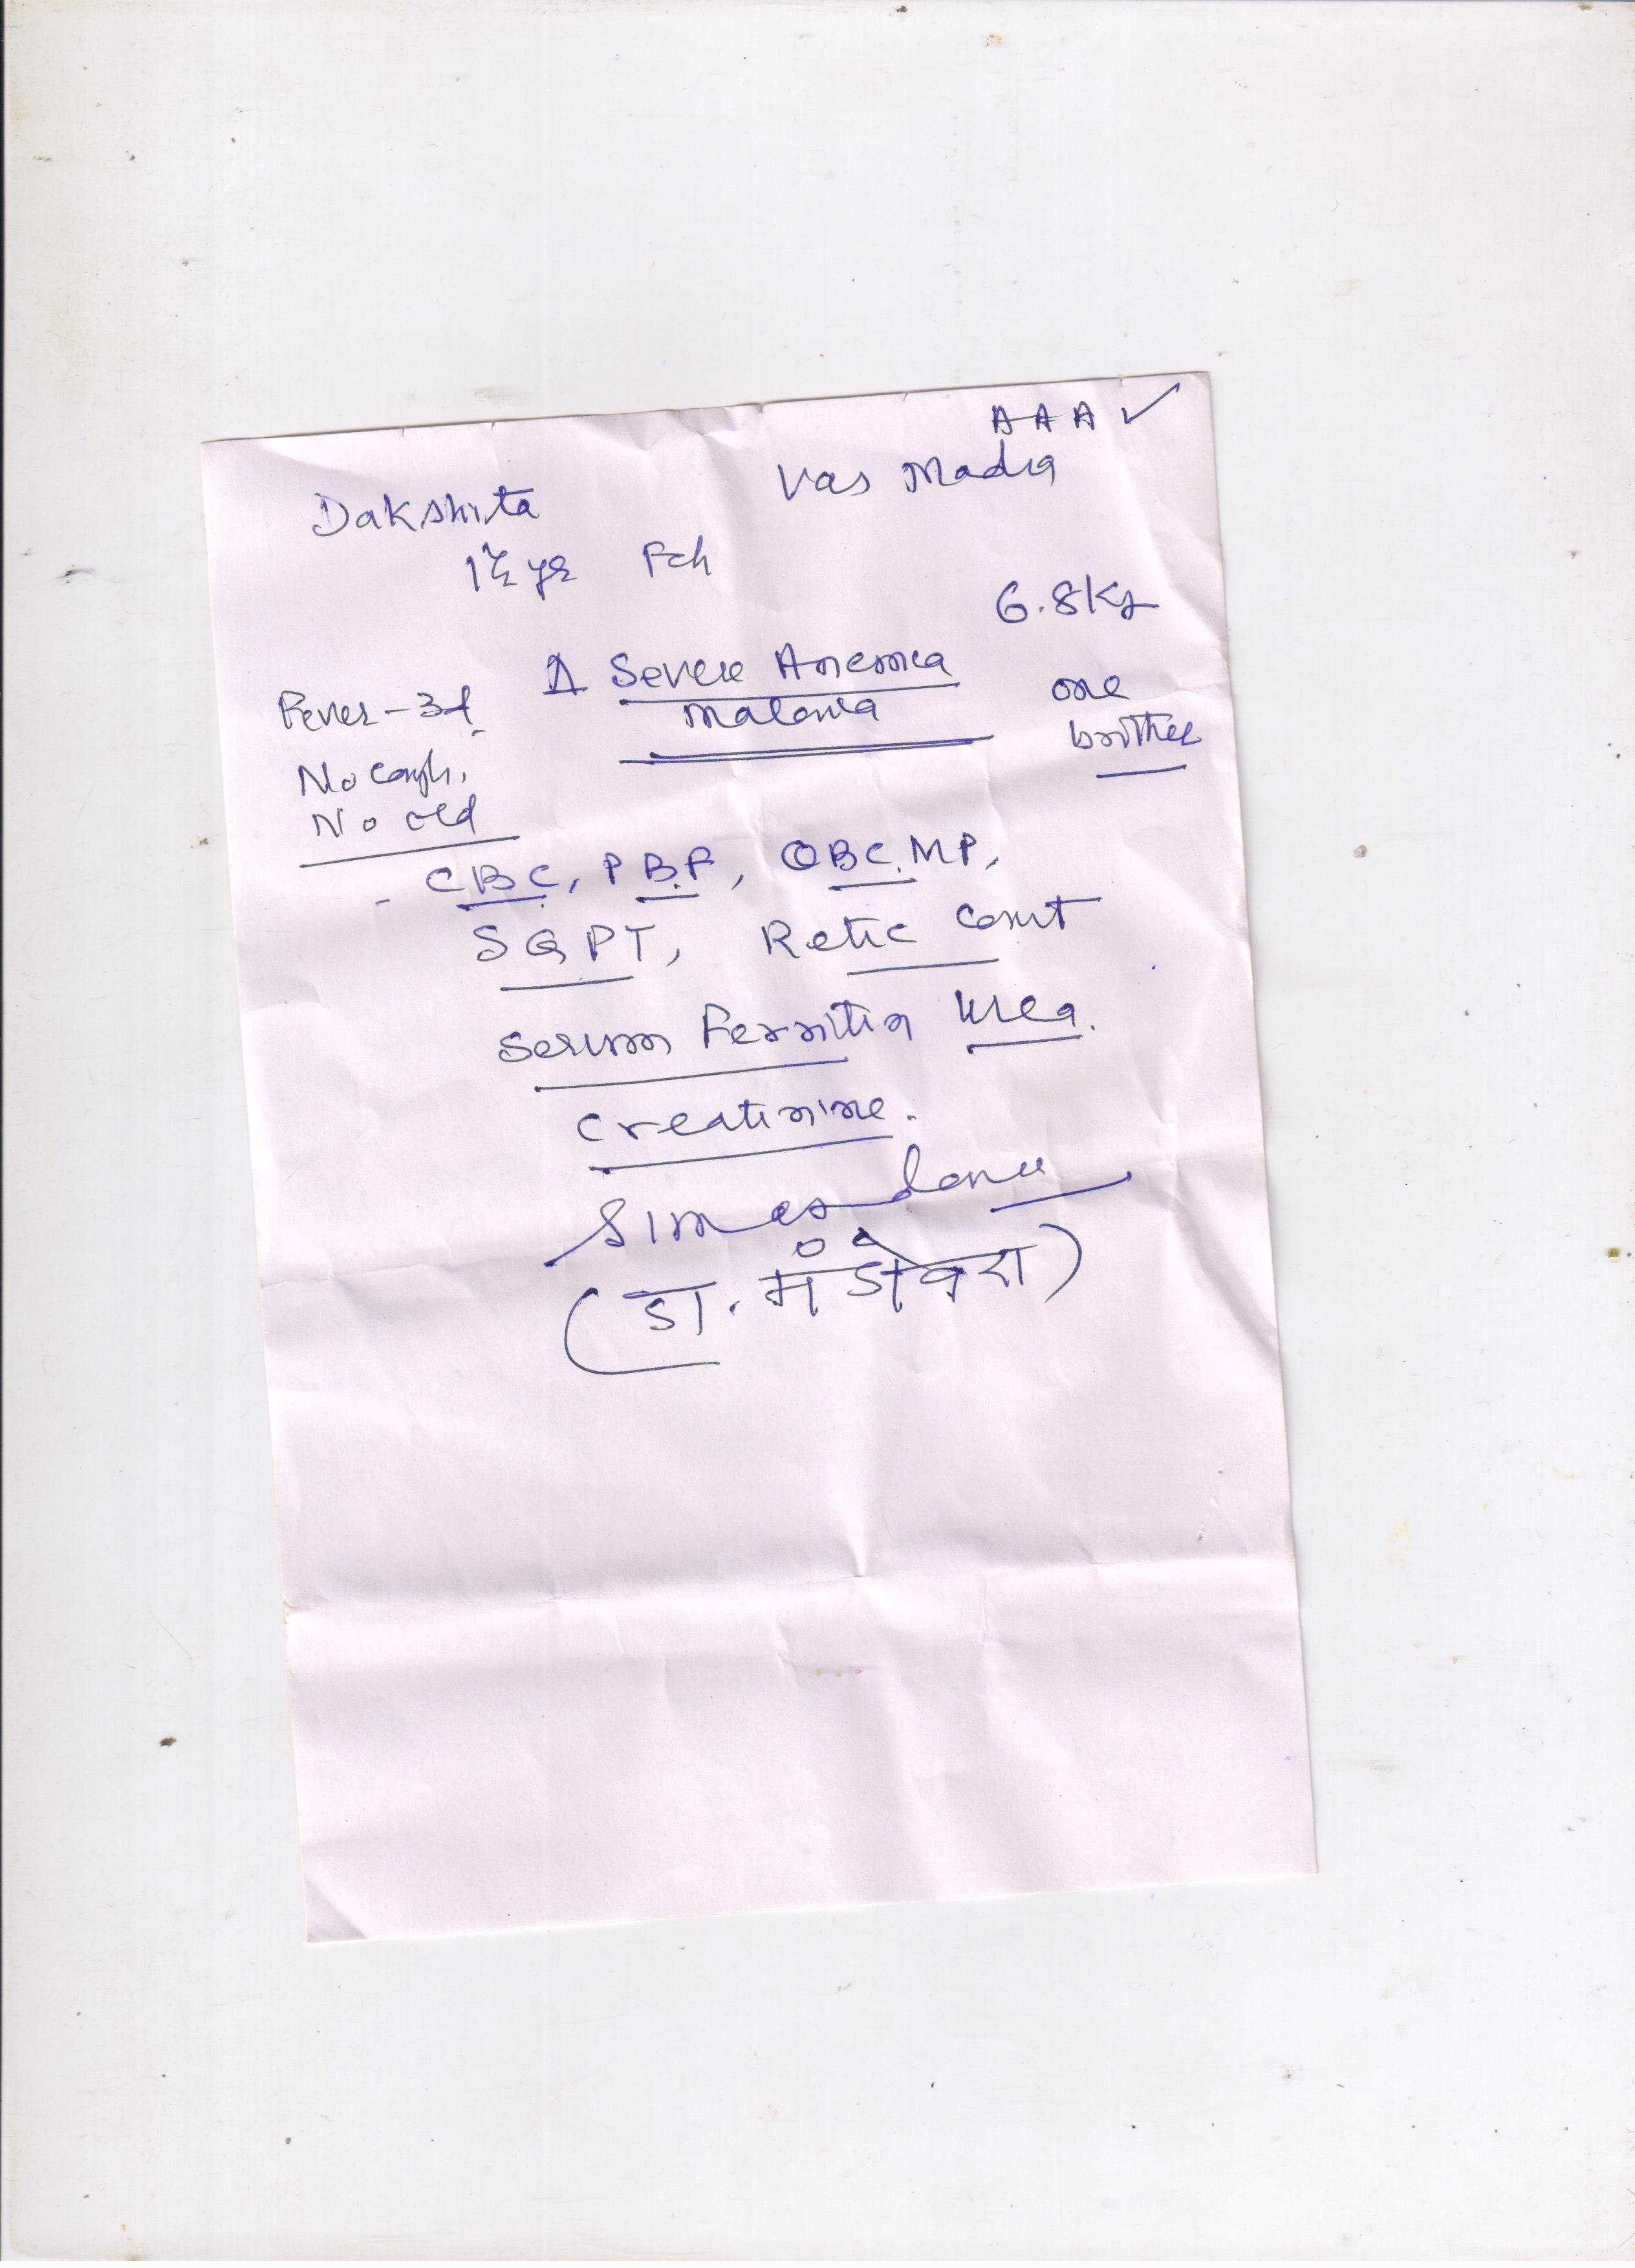 A A A ✓
Vas Madia
Dakshita
1½ yr Fch
6.8 Kg
Δ Severe Anemia
Malaria
one
brother
Fever - 3d.
No cough.
No cold
CBC, PBF, QBC MP,
SGPT, Retic Count
Serum Ferritin Urea.
Creatinine.
(डा. मंडोवरा)